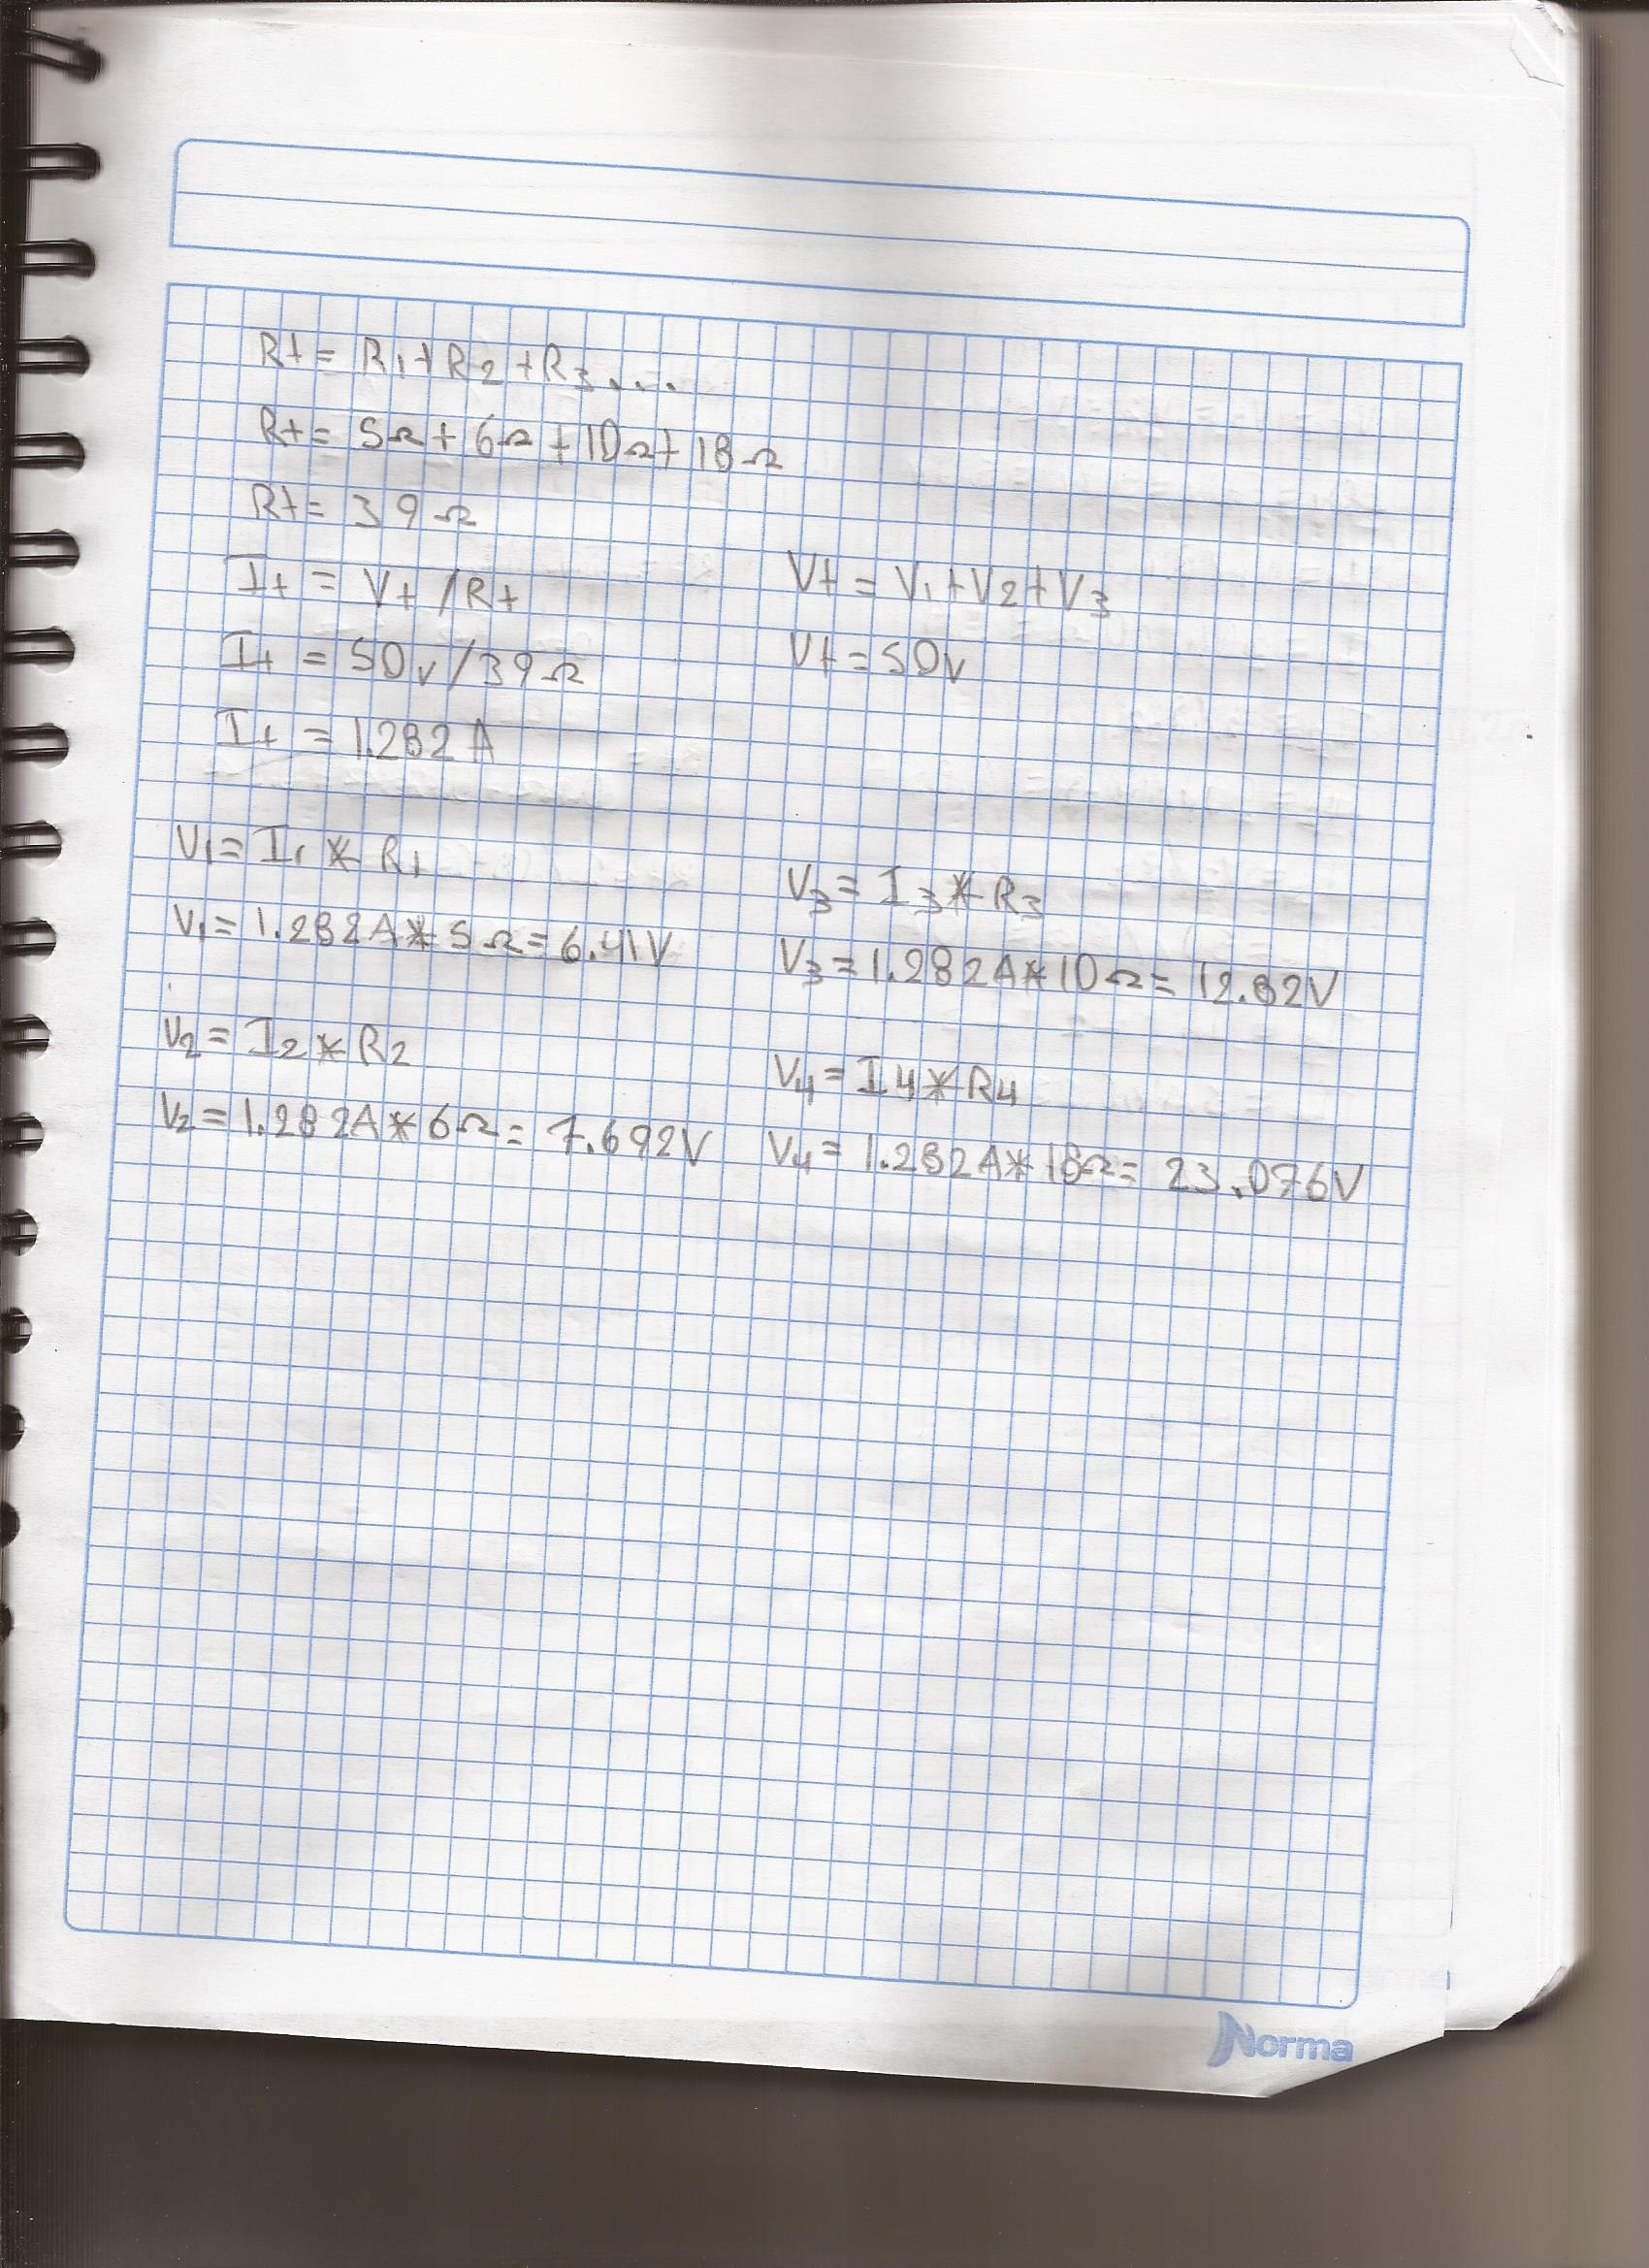 Rt = R1 + R2 + R3 ...
Rt = 5Ω + 6Ω + 10Ω + 18Ω
Rt = 39Ω
It = Vt / Rt
It = 50v / 39Ω
It = 1.282 A
Vt = V1 + V2 + V3
Vt = 50v
V1 = I1 * R1
V1 = 1.282A * 5Ω = 6.41V
V2 = I2 * R2
V2 = 1.282A * 6Ω = 7.692V
V3 = I3 * R3
V3 = 1.282A * 10Ω = 12.82V
V4 = I4 * R4
V4 = 1.282A * 18Ω = 23.076V
Norma